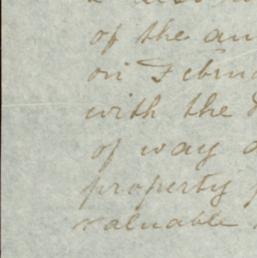 of the an
on Februa
with the
of way a
property
valuable